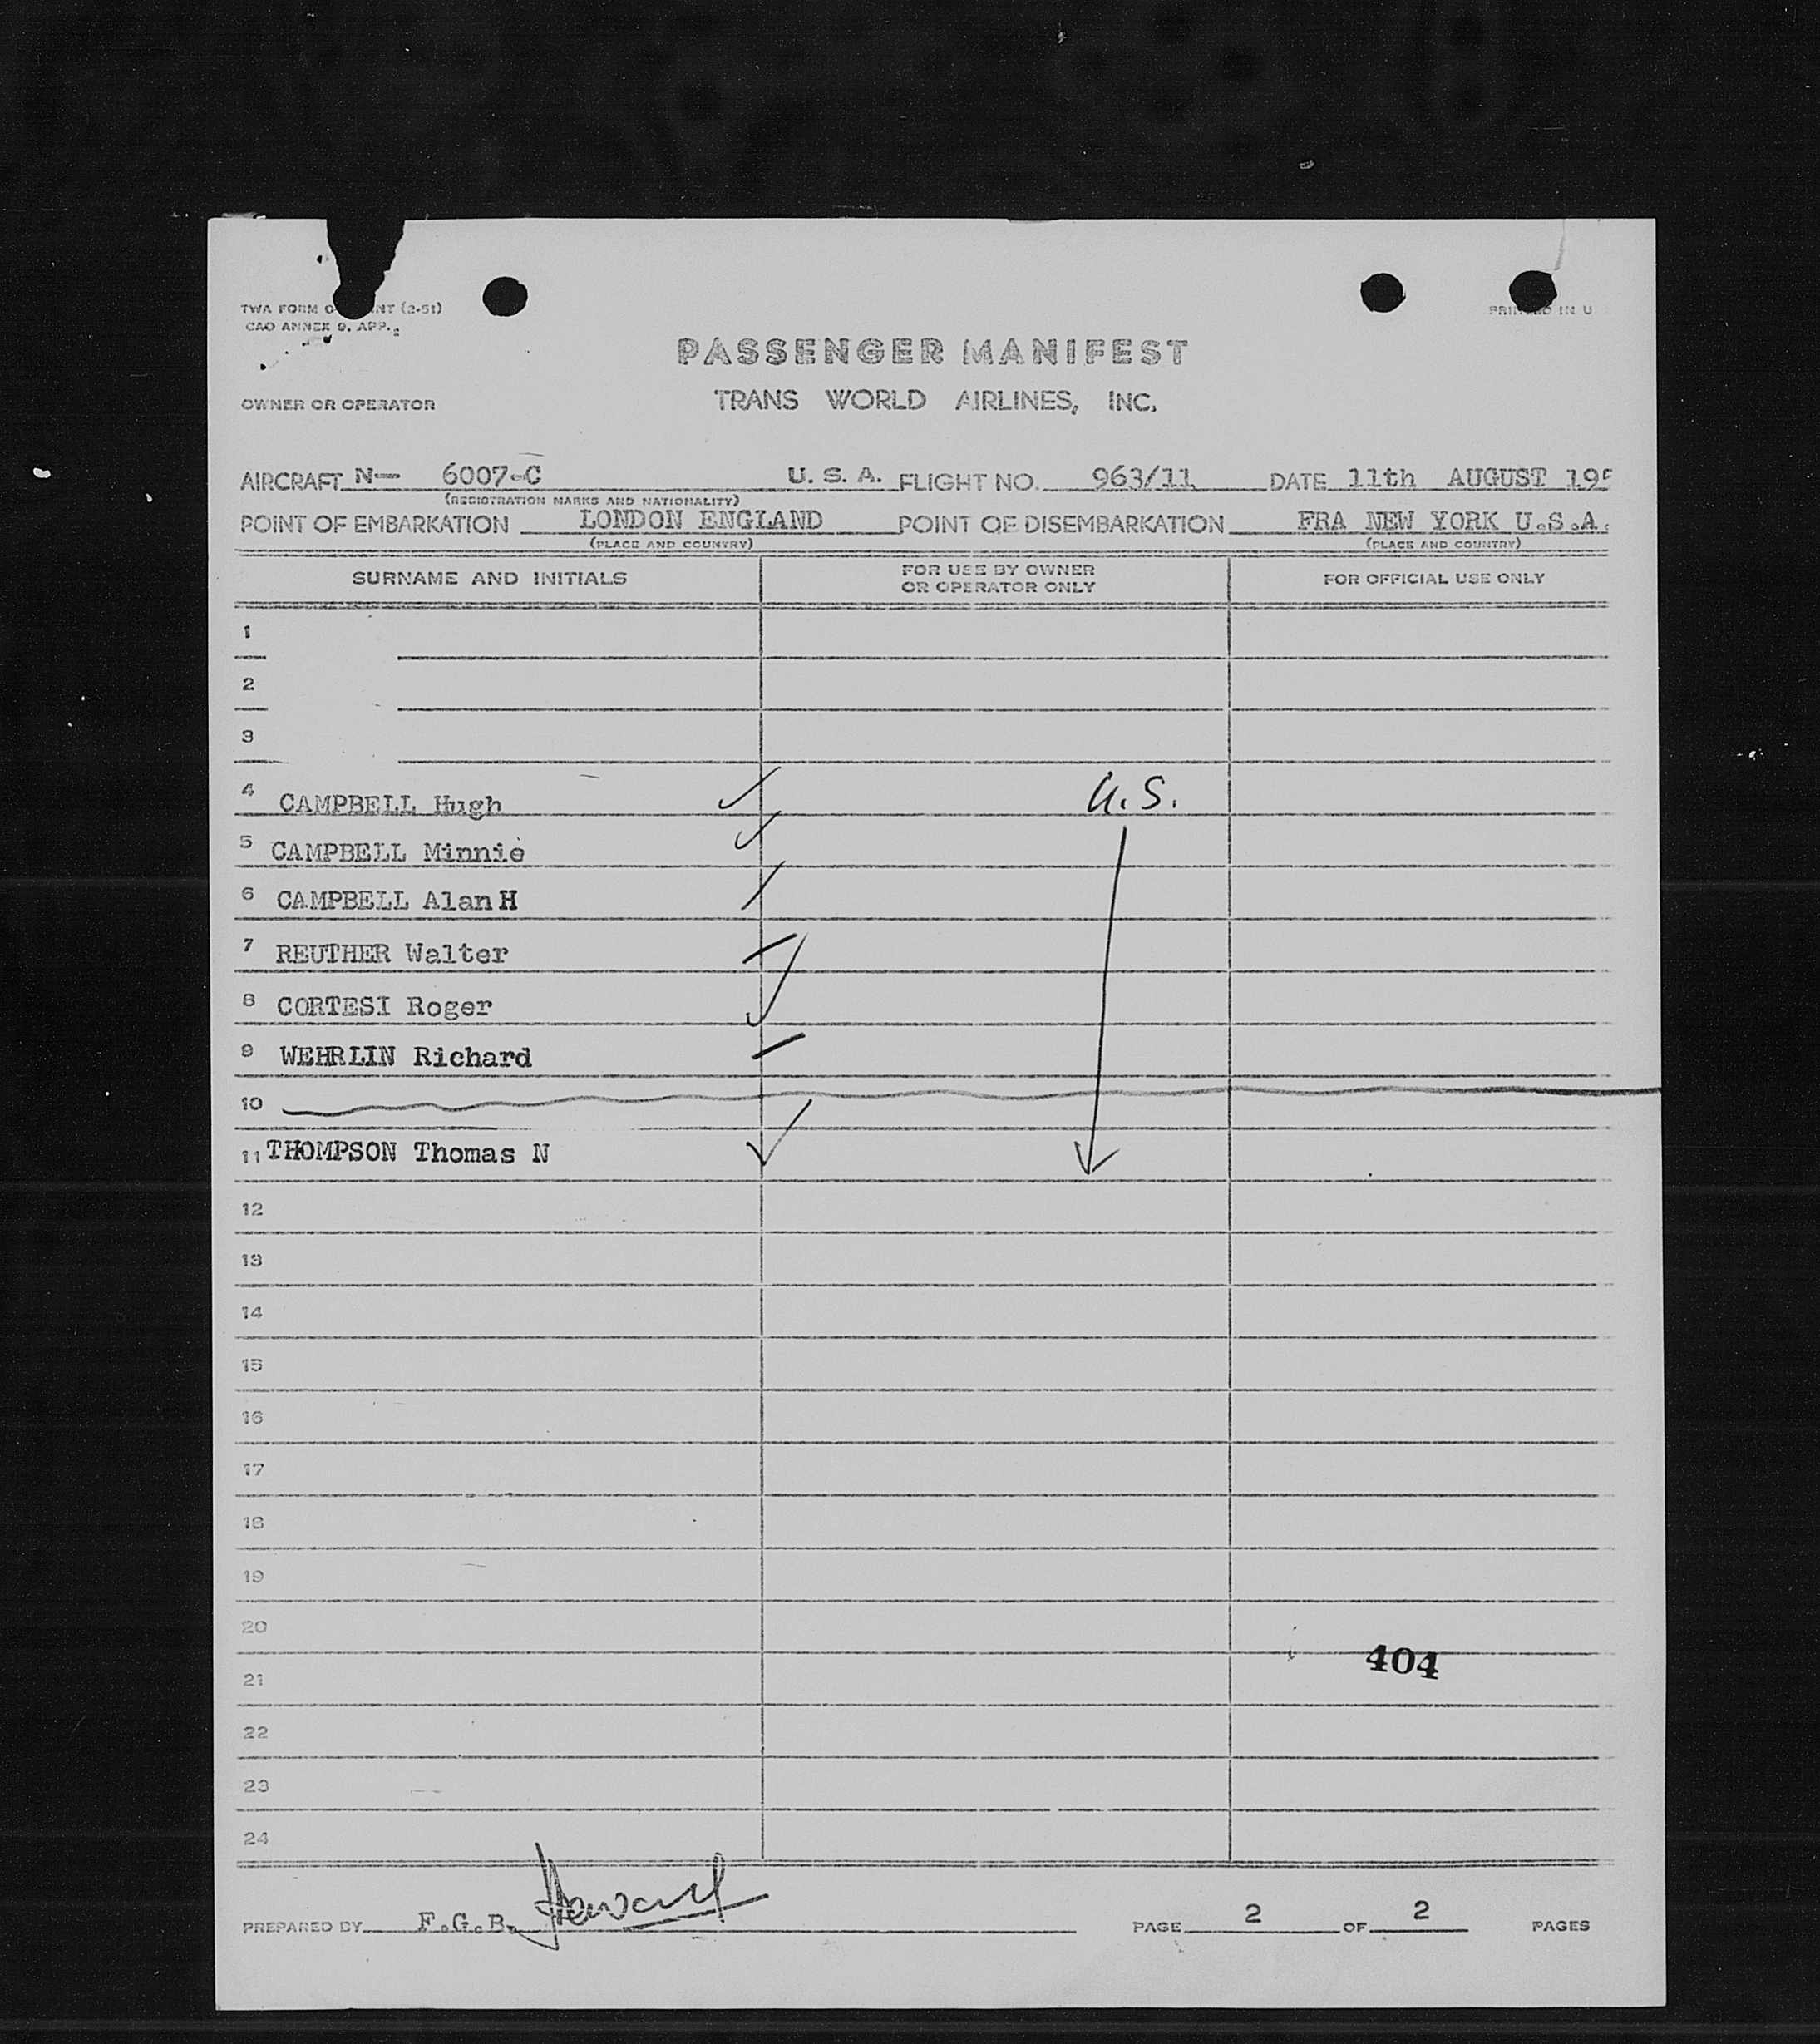 TWA FORM O NT (2-51)
PRINTED IN U
CAO ANNEX 9, APP. 2
PASSENGER MANIFEST
OWNER OR OPERATOR TRANS WORLD AIRLINES, INC.
AIRCRAFT N— 6007-C U. S. A. FLIGHT NO. 963/11 DATE 11th AUGUST 195
(REGISTRATION MARKS AND NATIONALITY)
POINT OF EMBARKATION LONDON ENGLAND POINT OF DISEMBARKATION FRA NEW YORK U.S.A.
(PLACE AND COUNTRY) (PLACE AND COUNTRY)
SURNAME AND INITIALS FOR USE BY OWNER OR OPERATOR ONLY FOR OFFICIAL USE ONLY
1
2
3
4 CAMPBELL Hugh U.S.
5 CAMPBELL Minnie
6 CAMPBELL Alan H
7 REUTHER Walter
8 CORTESI Roger
9 WEHRLIN Richard
10
11 THOMPSON Thomas N
12
13
14
15
16
17
18
19
20
404
21
22
23
24
PREPARED BY F.G.B. Howard PAGE 2 OF 2 PAGES